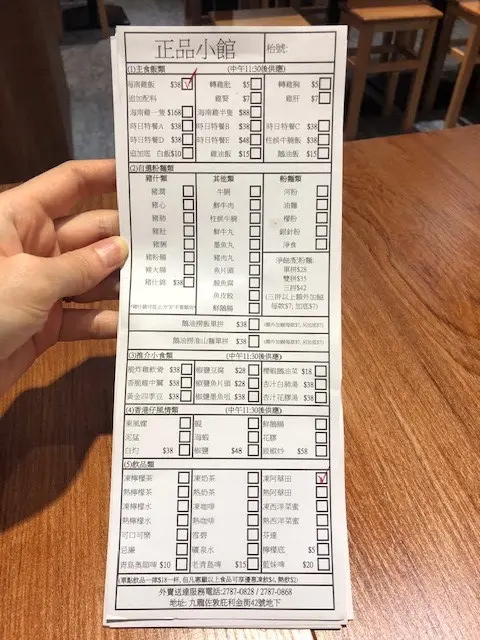 正品小館 枱號:
(1)主食飯類 (中午11:30後供應)
海南雞飯 $38 轉雞肶 $5 轉雞胸 $5
追加配料 雞腎 $7 雞肝 $7
海南雞一隻 $168 海南雞半隻 $88
時日特餐A $38 時日特餐B $38 時日特餐C $38
時日特餐D $38 時日特餐E $48 柱候牛腩飯 $38
追加底 白飯$10 雞油飯 $15 鵝油飯 $15
(2)自選粉麵類
豬什類 其他類 粉麵類
豬潤 牛腩 河粉
豬心 鮮牛肉 油麵
豬肺 柱候牛腩 米粉
豬肚 鮮牛丸
豬脷 墨魚丸 淨食
豬粉腸 豬肉丸 淨餸配粉麵
豬大腸 魚片頭 單拼$28
豬什錦 $38 雙拼$35
魚皮餃 三拼$42
鮮鵝腸 (三拼以上額外加餸
每款$7, 加底$7)
鵝油撈飯單拼 $38
鵝油撈淮山麵單拼 $38
(3)推介小食類 (中午11:30後供應)
脆炸雞軟骨 $38 椒鹽豆腐 $28 櫻蝦鵝油菜 $18
香脆雞中翼 $38 椒鹽魚片頭 $28 杏汁白肺湯 $38
黃金四季豆 $38 椒鹽墨魚咀 $38 杏汁花膠湯 $38
(4)香港仔風情類 (中午11:30後供應)
東風螺 蜆 鮮鵝腸
泥鯭 海蝦 花膠
白灼 $38 椒鹽 $48 豉椒炒 $58
(5)飲品類
凍檸檬茶 凍奶茶 凍阿華田
熱檸檬茶 熱奶茶 熱阿華田
凍檸檬水 凍咖啡 凍西洋菜蜜
熱檸檬水 熱咖啡 熱西洋菜蜜
可口可樂 雪碧 芬達
忌廉 礦泉水 檸檬底 $5
青島奧咕啤 $10 老青島啤 $15 藍妹啤 $20
(單點飲品一律$18一杯, 但凡惠顧以上食品可享優惠凍飲$4, 熱飲$2)
外賣送達服務電話:2787-0828 / 2787-0868
地址: 九龍佐敦庇利金街42號地下